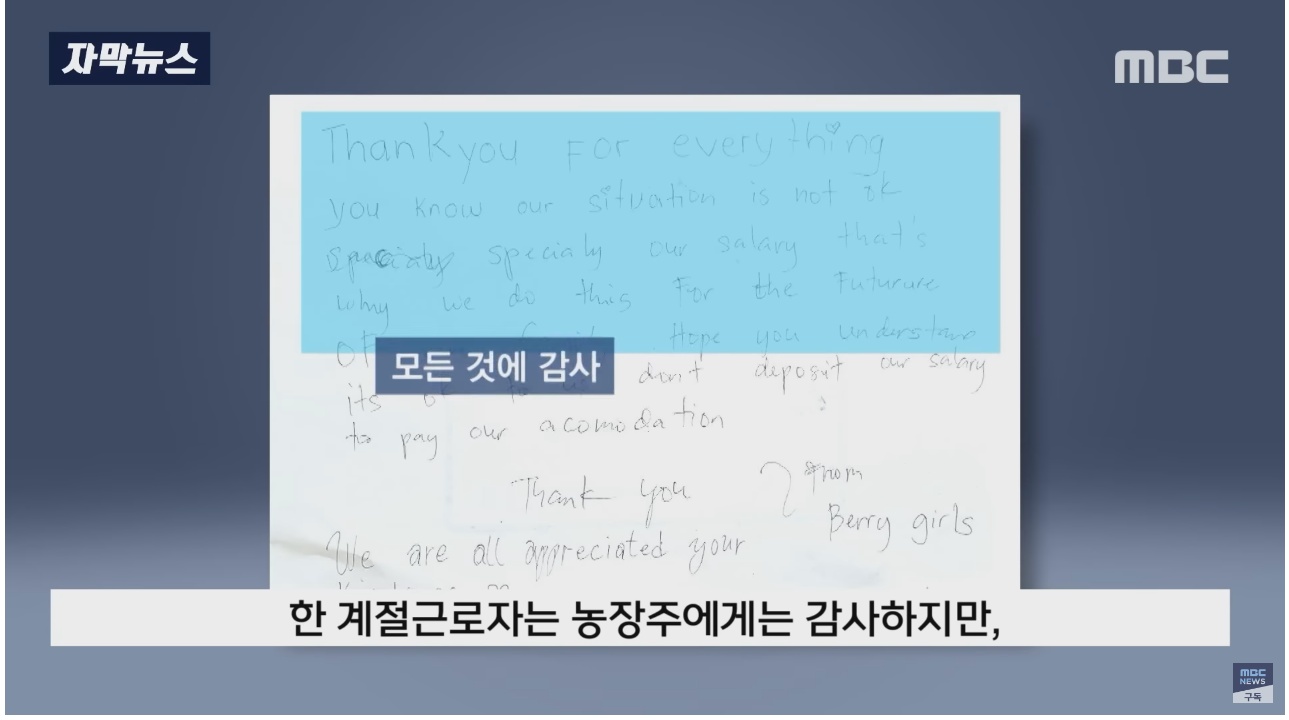 자막뉴스
MBC
Thankyou For everything
you know our situation is not ok
specialy our salary that's
why we do this For the Futurure
OF Hope you understand
모든 것에 감사
its ok to us don't deposit our salary
to pay our acomodation
Thank you
From
Berry girls
We are all appreciated your
한 계절근로자는 농장주에게는 감사하지만,
MBC
NEWS
구독